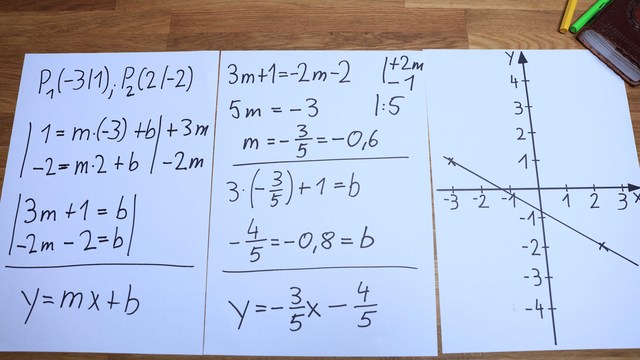 P₁(-3|1); P₂(2|-2)
| 1 = m·(-3) + b | +3m
| -2 = m·2 + b | -2m
| 3m + 1 = b |
| -2m - 2 = b |
y = mx + b
3m+1 = -2m-2 | +2m
| -1
5m = -3 | :5
m = -3/5 = -0,6
3·(-3/5) + 1 = b
-4/5 = -0,8 = b
y = -3/5x - 4/5
y
4
3
2
1
-3 -2 -1 1 2 3 x
-1
-2
-3
-4